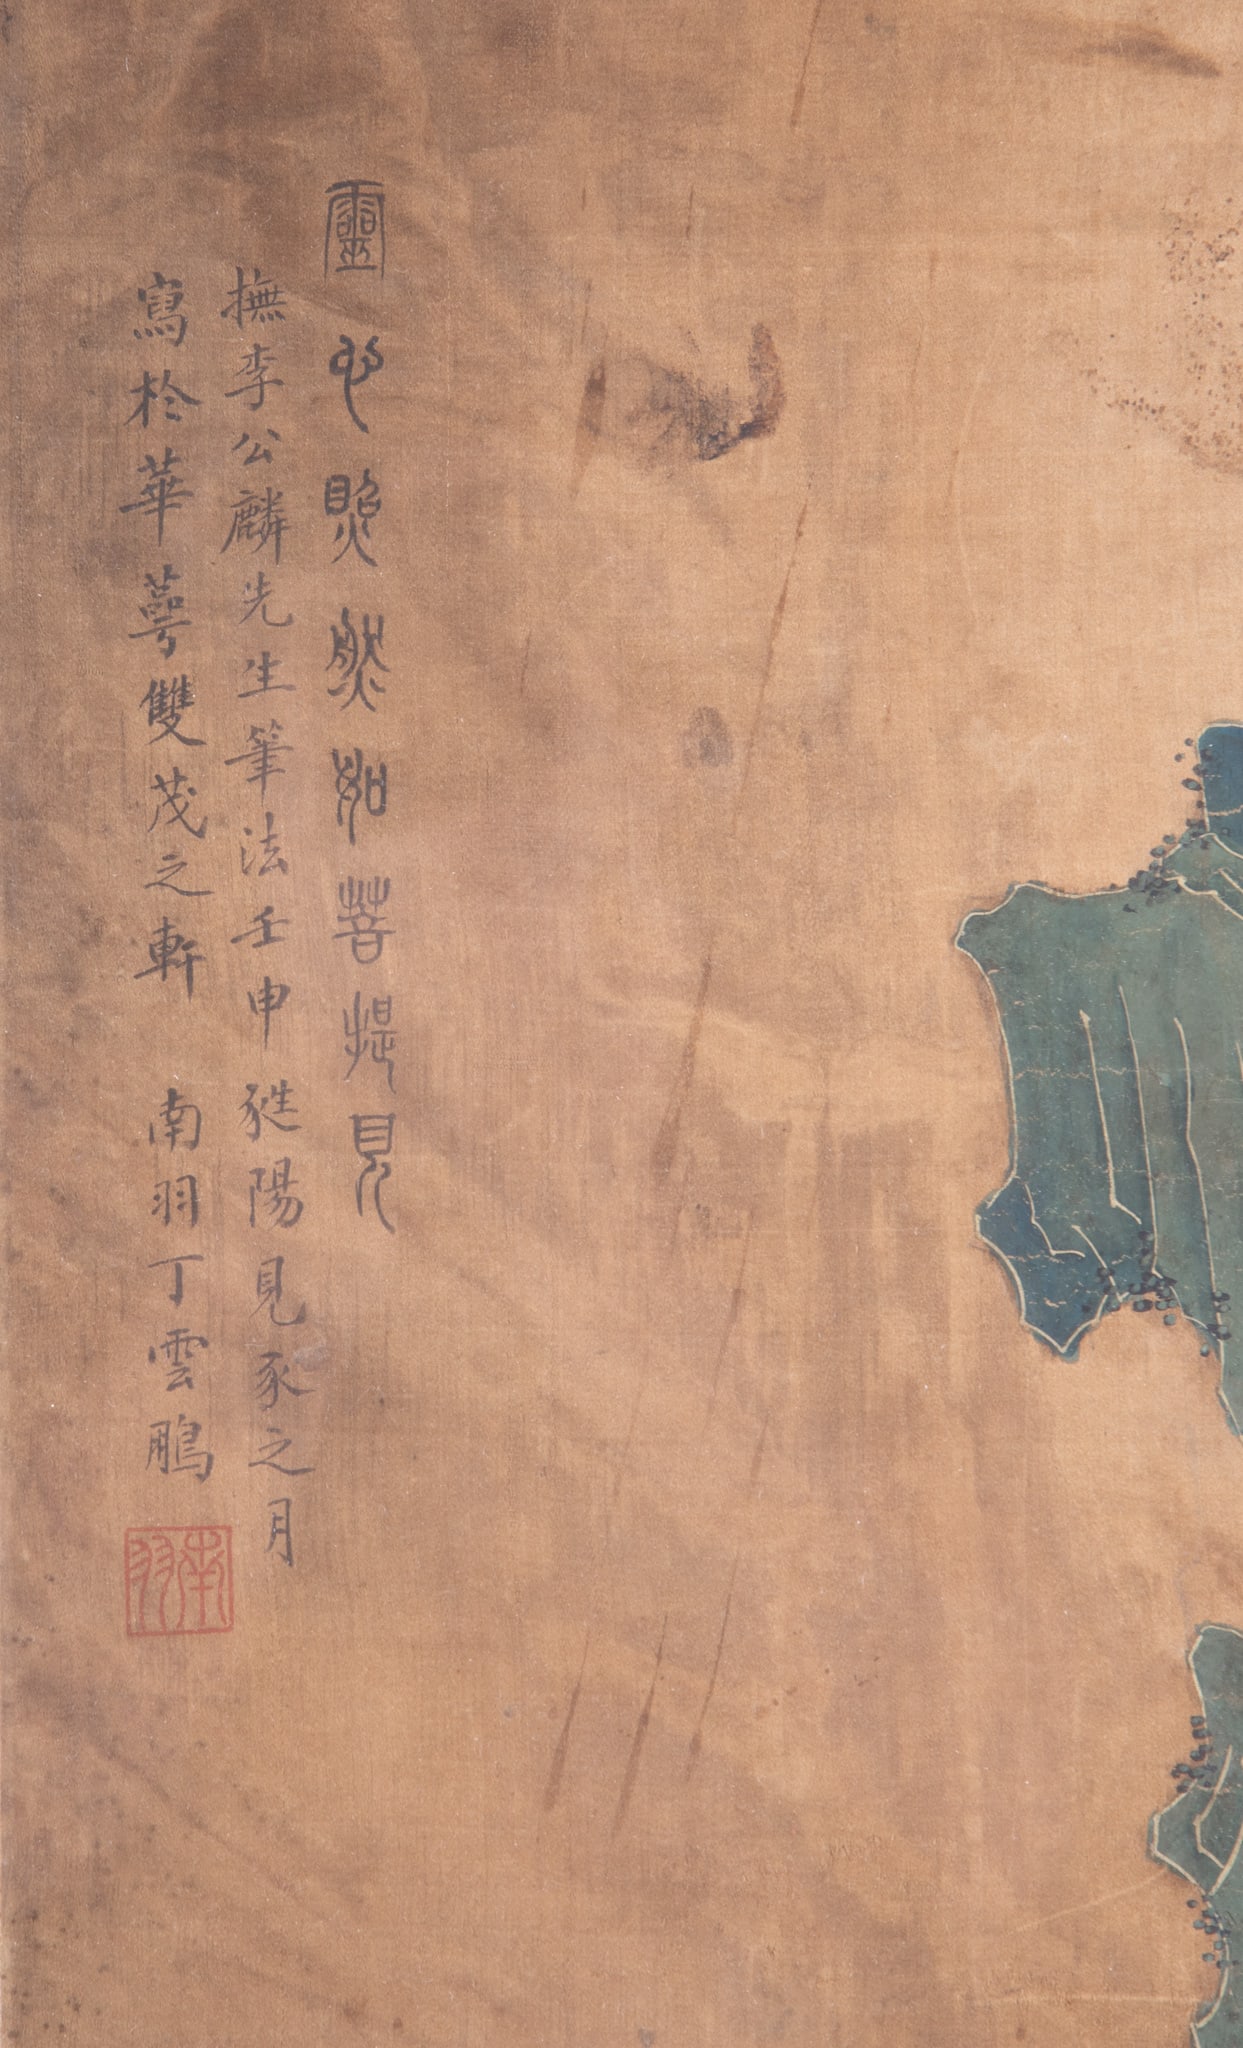 靈心照然如菩提見
撫李公麟先生筆法壬申蕤陽見豕之月
寫於華萼雙茂之軒 南羽丁雲鵬
南羽